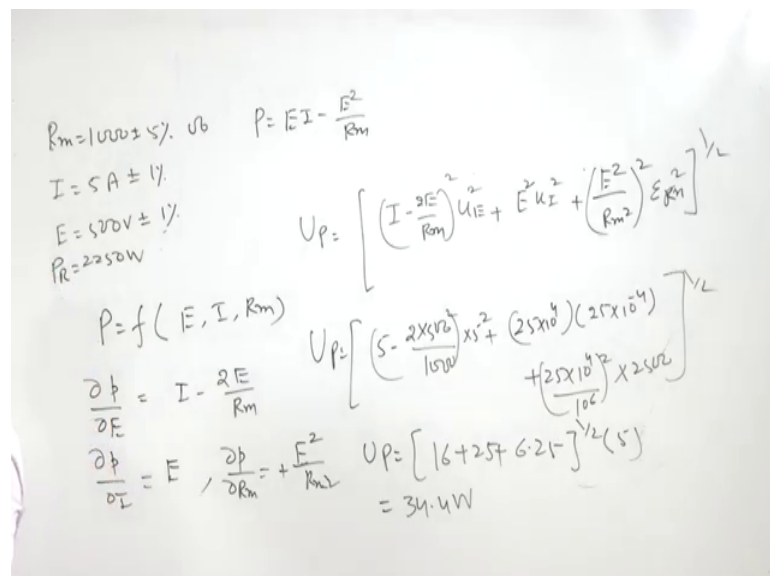 Rm=1000±5% Ω
P= EI - E²/Rm
I = 5A ± 1%
E = 500V ± 1%
PR=2250W
UP= [(I - 2E/Rm)² UE² + E² UI² + (E²/Rm²)² ERm²]^1/2
P=f( E, I, Rm)
UP=[(5 - 2x500/1000)² x5² + (25x10⁴)(25x10⁻⁴) + (25x10⁴/10⁶)² x 2500]^1/2
∂p/∂E = I - 2E/Rm
∂p/∂I = E , ∂p/∂Rm = + E²/Rm²
UP= [16+25+ 6.25]^1/2 (5)
= 34.4W